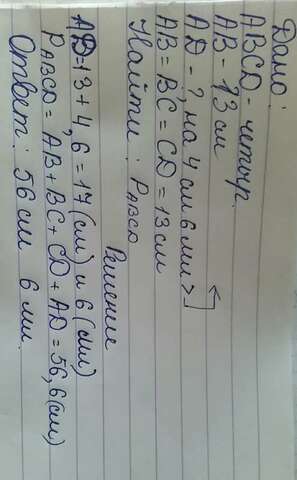 Дано:
ABCD - четыр.
AB - 13 см
AD - ?, на 4 см 6 мм >
AB = BC = CD = 13 см
Найти: P ABCD
Решение
AD=13+4,6=17(см) и 6(мм)
P ABCD = AB + BC + CD + AD = 56,6(см)
Ответ: 56 см 6 мм.